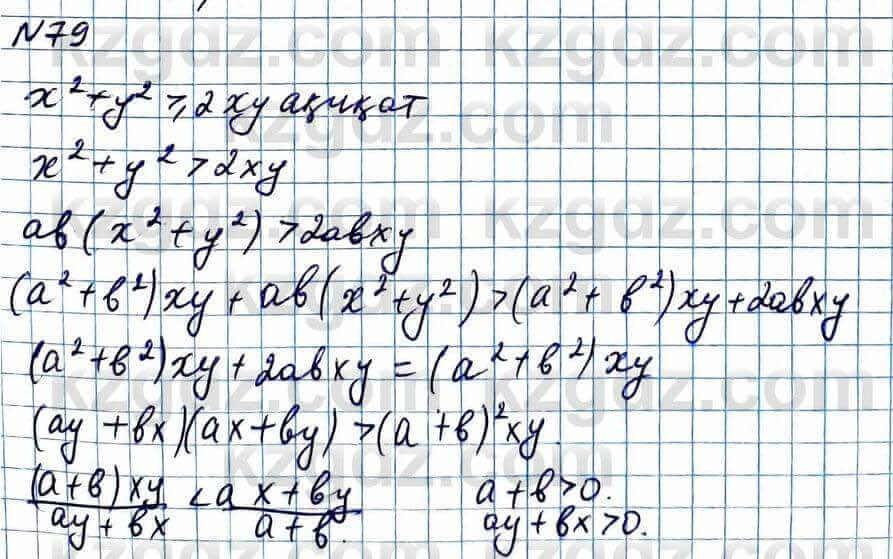 N79
x² + y² ≥ 2xy ақиқат
x² + y² > 2xy
aв(x² + y²) > 2aвxy
(a² + в²)xy + aв(x² + y²) > (a² + в²)xy + 2aвxy
(a² + в²)xy + 2aвxy = (a² + в²)xy
(ay + вx)(ax + вy) > (a + в)²xy.
(a + в)xy / ay + вx < ax + вy / a + в. a + в > 0.
ay + вx > 0.
kzgdz.com
kzgdz.com
kzgdz.com
kzgdz.com
kzgdz.com
kzgdz.com